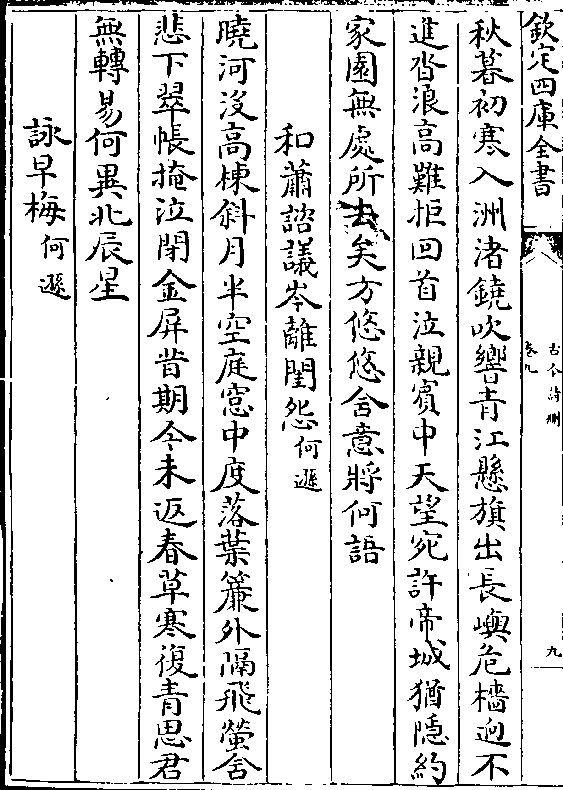 欽定四庫全書
古今詩刪
卷九
九
秋暮初寒入洲渚鐃吹響青江懸旗出長嶼危檣迥不
進沓浪高難拒回首泣親賓中天望宛許帝城猶隱約
家園無處所去矣方悠悠含意將何語
和蕭諮議岑離閨怨何遜
曉河没高棟斜月半空庭窓中度落葉簾外隔飛螢含
悲下翠帳掩泣閉金屏昔期今未返春草寒復青思君
無轉易何異北辰星
詠早梅何遜